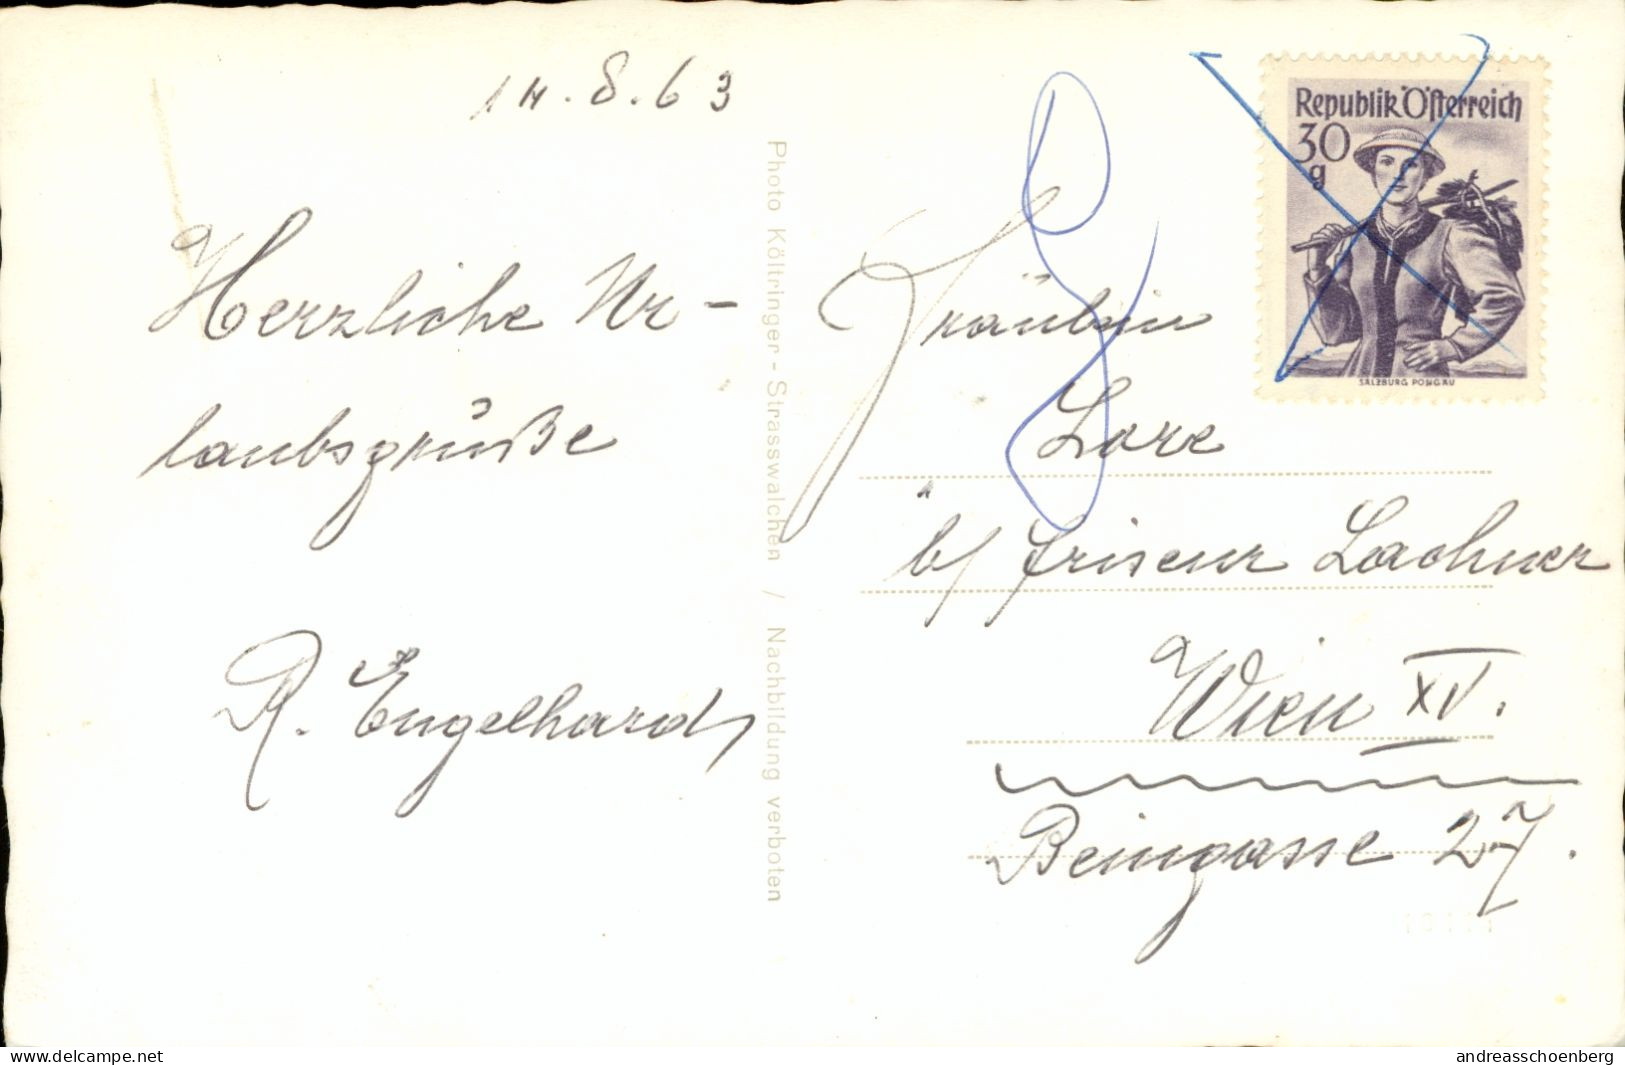 14.8.63
Herzliche Ur-
laubsgrüße
R. Engelhard
Photo Költringer - Strasswalchen / Nachbildung verboten
Republik Österreich
30
g
SALZBURG PONGAU
Fräulein
Lore
b/ Friseur Lachner
Wien XV.
Beingasse 27.
delcampe.net
andreasschoenberg